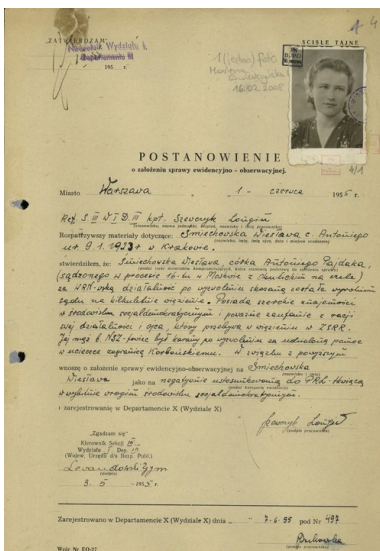 "ZATWIERDZAM"
Naczelnik Wydziału
Departamentu III
195 r.
ŚCIŚLE TAJNE
1 (jedno) foto
16.02.2008
4/1
POSTANOWIENIE
o założeniu sprawy ewidencyjno - obserwacyjnej.
Miasto Warszawa 1 - czerwca 1955 r.
Ref. S. III W I D. III kpt. Szewczyk Longin
Rozpatrzywszy materiały dotyczące: Śmiechowska Wiesława c. Antoniego
ur. 9.1.1923 w Krakowie.
stwierdziłem, że: Śmiechowska Wiesława córka Antoniego Pajdaka,
(sądzonego w procesie 16-tu w Moskwie z Okulickim na czele)
za WRN-wską działalność po wyzwoleniu skazaną została wyrokiem
sądu na kilkuletnie więzienie. Posiada szerokie znajomości
w środowisku socjaldemokratycznym i poważne zaufanie z racji
swej działalności i ojca, który przebywa w więzieniu w ZSRR.
Jej mąż b. NSZ-owiec był karany po wyzwoleniu za udzieloną pomoc
w ucieczce zagranicę Korbońskiemu. W związku z powyższym
wnoszę o założenie sprawy ewidencyjno-obserwacyjnej na Śmiechowska
Wiesława jako na negatywnie ustosunkowaną do PRL tkwiącą
w wrogim środowisku socjaldemokratycznym.
i zarejestrowanie w Departamencie X (Wydziale X)
"Zgadzam się"
Kierownik Sekcji III
Wydziału I Dep. III
(Wojew. Urzędu d/s Bezp. Publ.)
Lewandowski Zygm
3. 6 - 1955 r.
Zarejestrowano w Departamencie X (Wydziale X) dnia 7.6.55 pod Nr 497
Wzór Nr EO-27